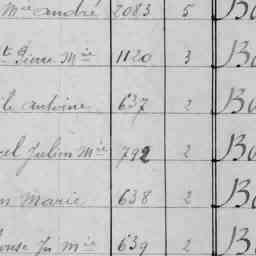 Mie andré 2083 5 Bo
Pierre Mie 1120 3 Bo
antoine 637 2 Bo
el Julien Mie 792 2 Bo
n Marie 638 2 Bo
Jn Mie 639 2 Bo